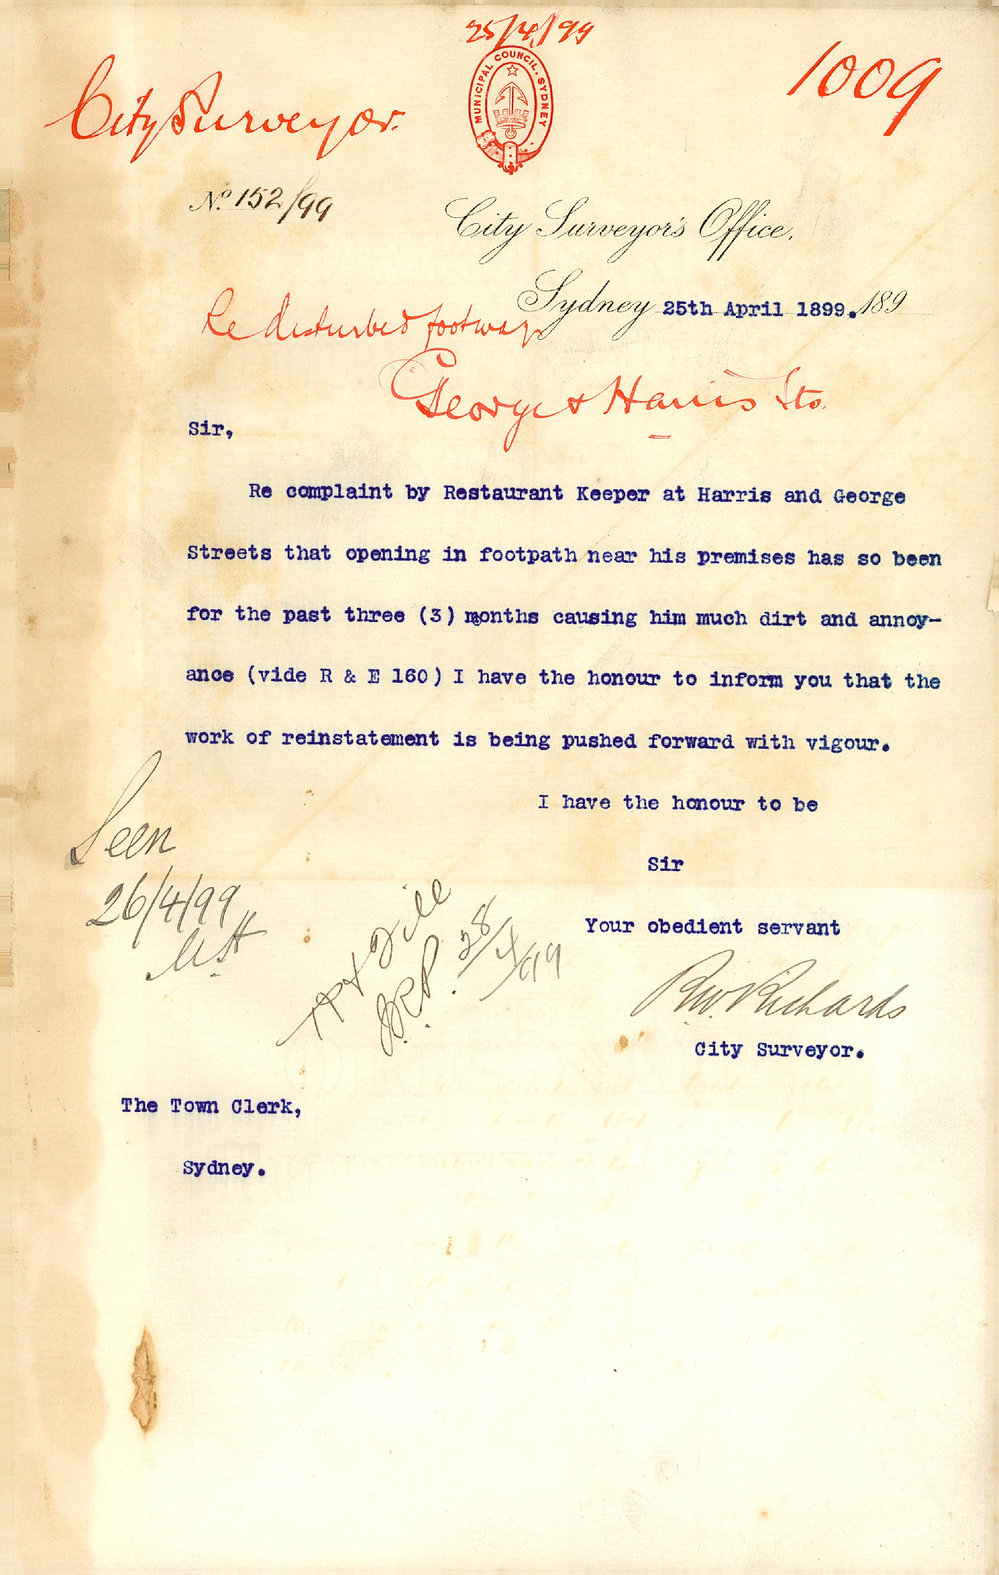 25/4/99
MUNICIPAL COUNCIL. SYDNEY
1009
City Surveyor.
No. 152/99
City Surveyor's Office,
Sydney 25th April 1899. 189
Re disturbed footway
George & Harris Sts.
Sir,
Re complaint by Restaurant Keeper at Harris and George
Streets that opening in footpath near his premises has so been
for the past three (3) months causing him much dirt and annoy-
ance (vide R & E 160) I have the honour to inform you that the
work of reinstatement is being pushed forward with vigour.
I have the honour to be
Sir
Your obedient servant
R.W. Richards
City Surveyor.
Seen
26/4/99
28/4/99
The Town Clerk,
Sydney.